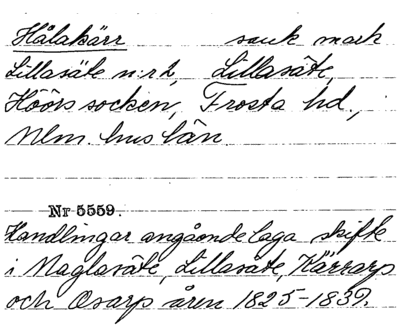 Hålakärr sank mark
Lillasäte n:r 1, Lillasäte,
Höörs socken, Frosta hd.,
Mlm. hus län.
Nr 5559.
Handlingar angående laga skifte
i Maglasäte, Lillasäte, Kärrarp
och Osarp åren 1825-1839.